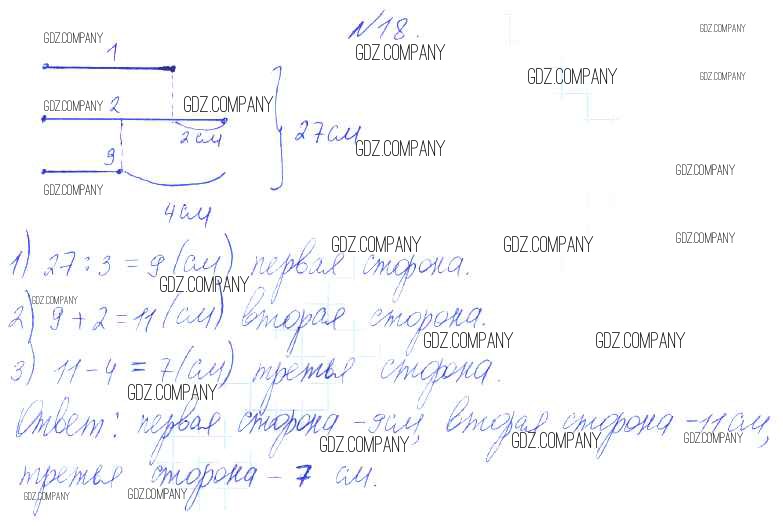 №18.
GDZ.COMPANY
GDZ.COMPANY
GDZ.COMPANY
1
GDZ.COMPANY
GDZ.COMPANY
2
GDZ.COMPANY
GDZ.COMPANY
2 см
27 см
GDZ.COMPANY
3
GDZ.COMPANY
GDZ.COMPANY
4 см
GDZ.COMPANY
GDZ.COMPANY
GDZ.COMPANY
1) 27 : 3 = 9 (см) первая сторона.
GDZ.COMPANY
GDZ.COMPANY
2) 9 + 2 = 11 (см) вторая сторона.
GDZ.COMPANY
GDZ.COMPANY
3) 11 - 4 = 7 (см) третья сторона.
GDZ.COMPANY
Ответ: первая сторона - 9 см, вторая сторона - 11 см,
GDZ.COMPANY
GDZ.COMPANY
GDZ.COMPANY
третья сторона - 7 см.
GDZ.COMPANY
GDZ.COMPANY